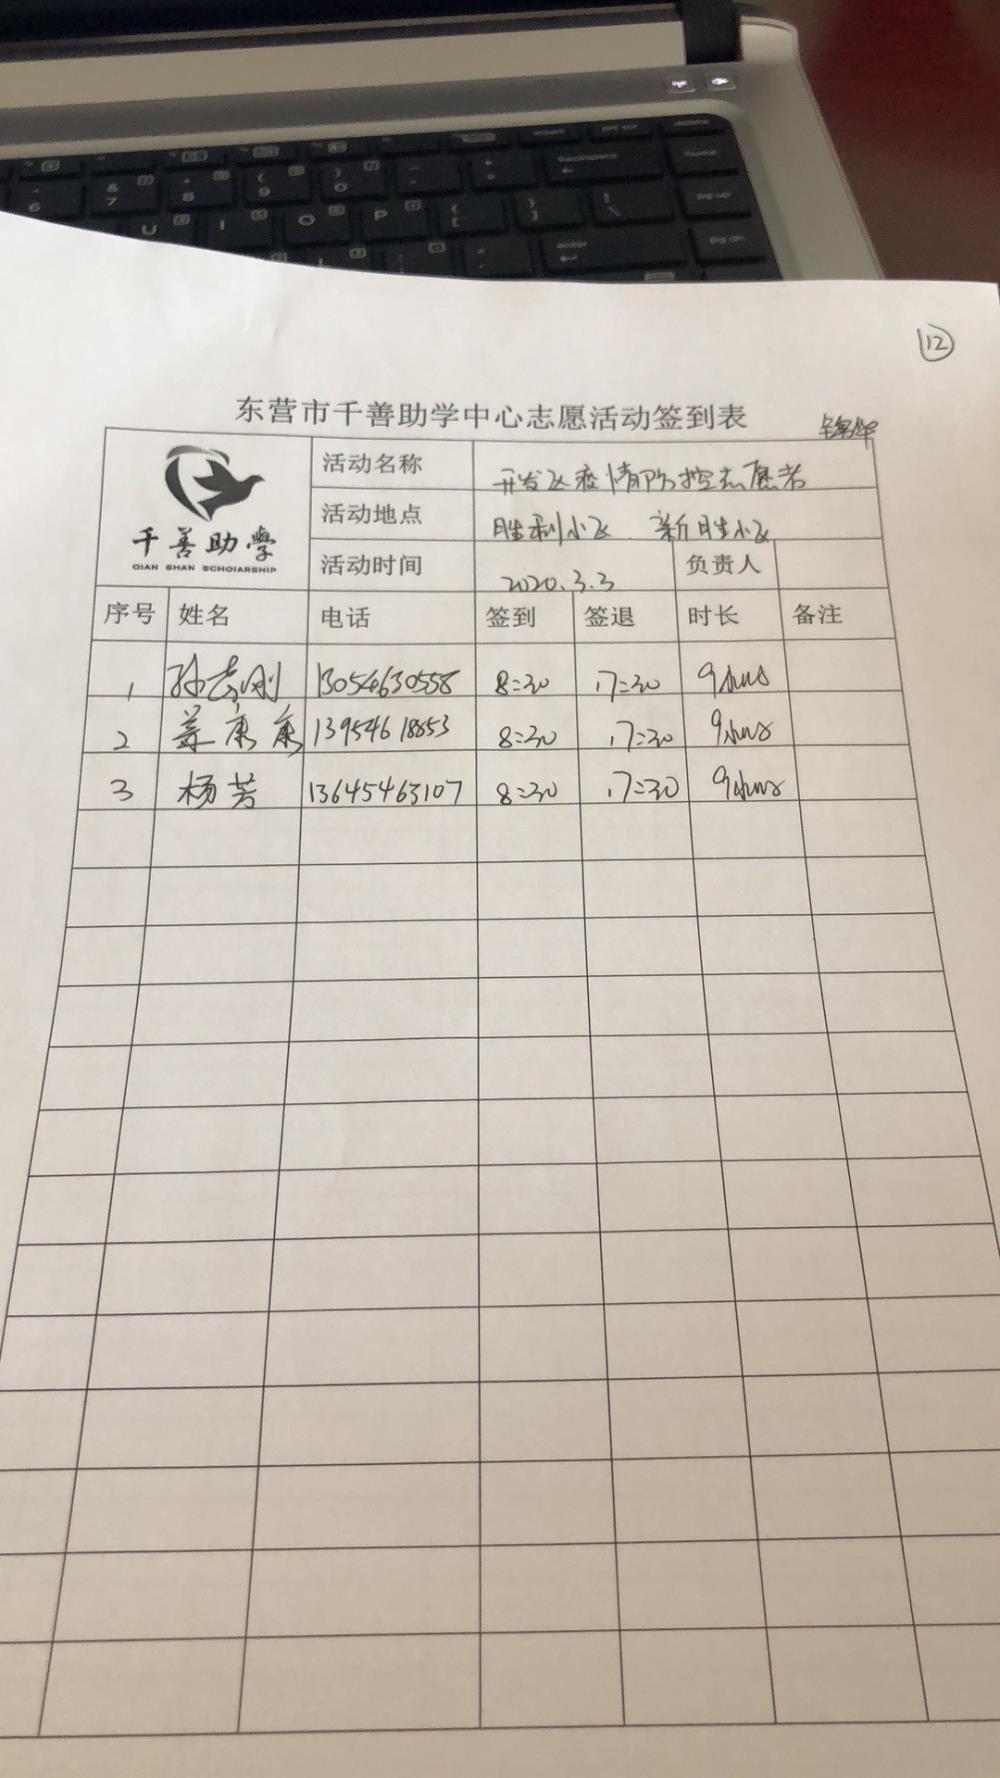 12
东营市千善助学中心志愿活动签到表
锦华
千善助学
QIAN SHAN SCHOLARSHIP
活动名称 开发区疫情防控志愿者
活动地点 胜利小区 新胜小区
活动时间 2020.3.3 负责人
序号 姓名 电话 签到 签退 时长 备注
1 孙志刚 13054630558 8:30 17:30 9hours
2 盖康康 13954618853 8:30 17:30 9hours
3 杨芳 13645463107 8:30 17:30 9hours
6 7 8 9 0
U I O P { [ } ] | \
backspace
home
pg up
enter
pg dn